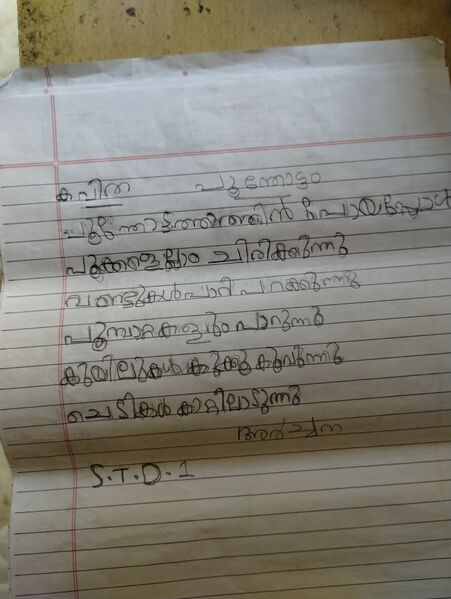 കവിത പൂന്തോട്ടം
പൂന്തോട്ടത്തിൽ പോയപ്പോൾ
പൂക്കളെല്ലാം ചിരിക്കുന്നു
വണ്ടുകൾ പാറി പറക്കുന്നു
പൂമ്പാറ്റകളും പാറുന്നു
കുയിലുകൾ കുക്കു കൂവുന്നു
ചെടികൾ കാറ്റിലാടുന്നു
അർച്ചന
S.T.D.1